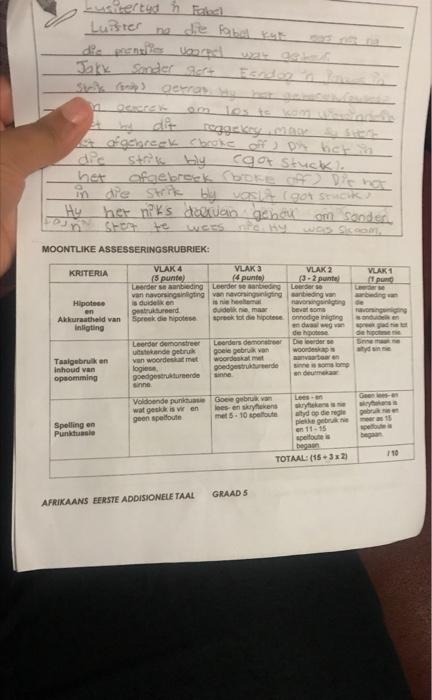 Luister na die Fabel kyk
die prentjies
Jakk sonder stert Eendag 'n
strik (trap) getrap. Hy het
om los te kom
het hy dit reggekry, maar sy stert
het afgebreek (broke off) Dit het in
die strik bly (got stuck).
het afgebreek (broke off) Dit het
in die strik bly vassit (got stuck)
Hy het niks daarvan gehou om sonder
'n stert te wees nie. Hy was skaam.
MOONTLIKE ASSESSERINGSRUBRIEK:
KRITERIA VLAK 4 (5 punte) VLAK 3 (4 punte) VLAK 2 (3 - 2 punte) VLAK 1 (1 punt)
Hipotese en Akkuraatheid van inligting
Leerder se aanbieding van navorsingsinligting is duidelik en gestruktureerd. Spreek die hipotese.
Leerder se aanbieding van navorsingsinligting is nie heeltemal duidelik nie, maar spreek tot die hipotese.
Leerder se aanbieding van navorsingsinligting bevat soms onnodige inligting en dwaal weg van die hipotese.
Leerder se aanbieding van die navorsingsinligting is onduidelik en spreek glad nie tot die hipotese nie.
Taalgebruik en inhoud van opsomming
Leerder demonstreer uitstekende gebruik van woordeskat met logiese, goedgestruktureerde sinne.
Leerders demonstreer goeie gebruik van woordeskat met goedgestruktureerde sinne.
Die leerder se woordeskap is aanvaarbaar en sinne is soms lomp en deurmekaar.
Sinne maak nie altyd sin nie.
Spelling en Punktuasie
Voldoende punktuasie wat geskik is vir en geen spelfoute
Goeie gebruik van lees- en skryftekens met 5 - 10 spelfoute
Lees - en skryftekens is nie altyd op die regte plekke gebruik nie en 11 - 15 spelfoute is begaan.
Geen lees- en skryftekens is gebruik nie en meer as 15 spelfoute is begaan.
TOTAAL: (15 + 3 x 2) / 10
AFRIKAANS EERSTE ADDISIONELE TAAL GRAAD 5